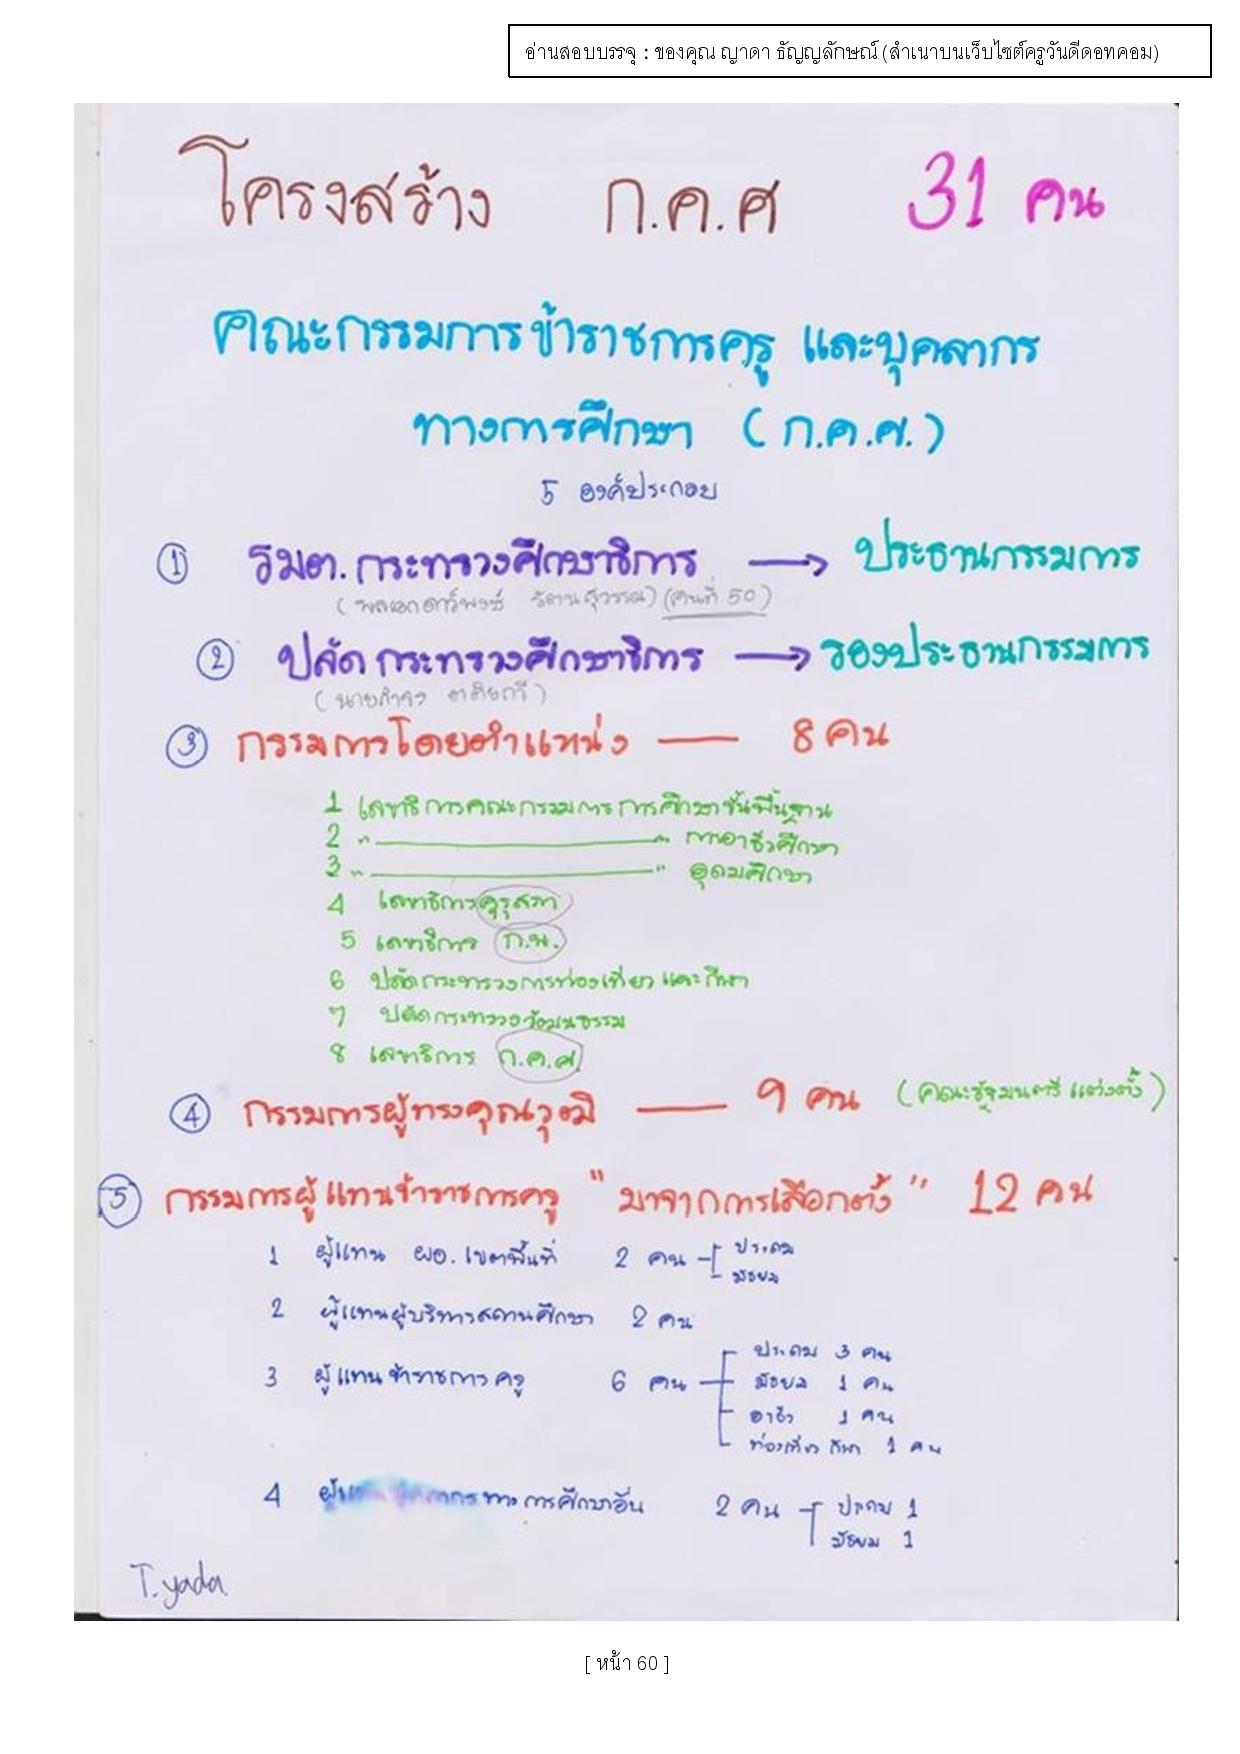 อ่านสอบบรรจุ : ของคุณ ญาดา ธัญญลักษณ์ (สำเนาบนเว็บไซต์ครูวันดีดอทคอม)
โครงสร้าง ก.ค.ศ 31 คน
คณะกรรมการข้าราชการครู และบุคลากร
ทางการศึกษา (ก.ค.ศ.)
5 องค์ประกอบ
① รมต.กระทรวงศึกษาธิการ → ประธานกรรมการ
(พลเอกดาว์พงษ์ รัตนสุวรรณ) (คนที่ 50)
② ปลัดกระทรวงศึกษาธิการ → รองประธานกรรมการ
(นายกำจร ตติยกวี)
③ กรรมการโดยตำแหน่ง — 8 คน
1 เลขาธิการคณะกรรมการการศึกษาขั้นพื้นฐาน
2 " ——— " การอาชีวศึกษา
3 " ——— " อุดมศึกษา
4 เลขาธิการคุรุสภา
5 เลขาธิการ ก.พ.
6 ปลัดกระทรวงการท่องเที่ยว และกีฬา
7 ปลัดกระทรวงวัฒนธรรม
8 เลขาธิการ ก.ค.ศ.
④ กรรมการผู้ทรงคุณวุฒิ — 9 คน (คณะรัฐมนตรี แต่งตั้ง)
⑤ กรรมการผู้แทนข้าราชการครู "มาจากการเลือกตั้ง" 12 คน
1 ผู้แทน ผอ.เขตพื้นที่ 2 คน
ประถม
มัธยม
2 ผู้แทนผู้บริหารสถานศึกษา 2 คน
3 ผู้แทนข้าราชการครู 6 คน
ประถม 3 คน
มัธยม 1 คน
อาชีว 1 คน
ท่องเที่ยว กีฬา 1 คน
4 ผู้แทนบุคลากรทางการศึกษาอื่น 2 คน
ประถม 1
มัธยม 1
T.yada
[ หน้า 60 ]